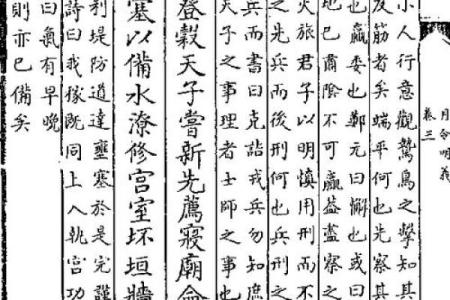 月令明義
卷三
小人行意觀鷙鳥之擊知其
反筋者矣端平何也先察其
也贏委也鄭元曰懈也或曰
地巳肅陰不可贏益盡察之
火旅君子以明慎用刑而不
先以兵而後刑何也兵刑之
兵而書曰克詰戎兵勿知庶
天子之事理者士師之事也
登穀天子嘗新先薦寢廟命
塞以備水潦修宮室坏垣牆
利堤防道達壅塞於是完謹
詩曰我稼既同上入執宮功
曰氣有早晚
則亦巳備矣